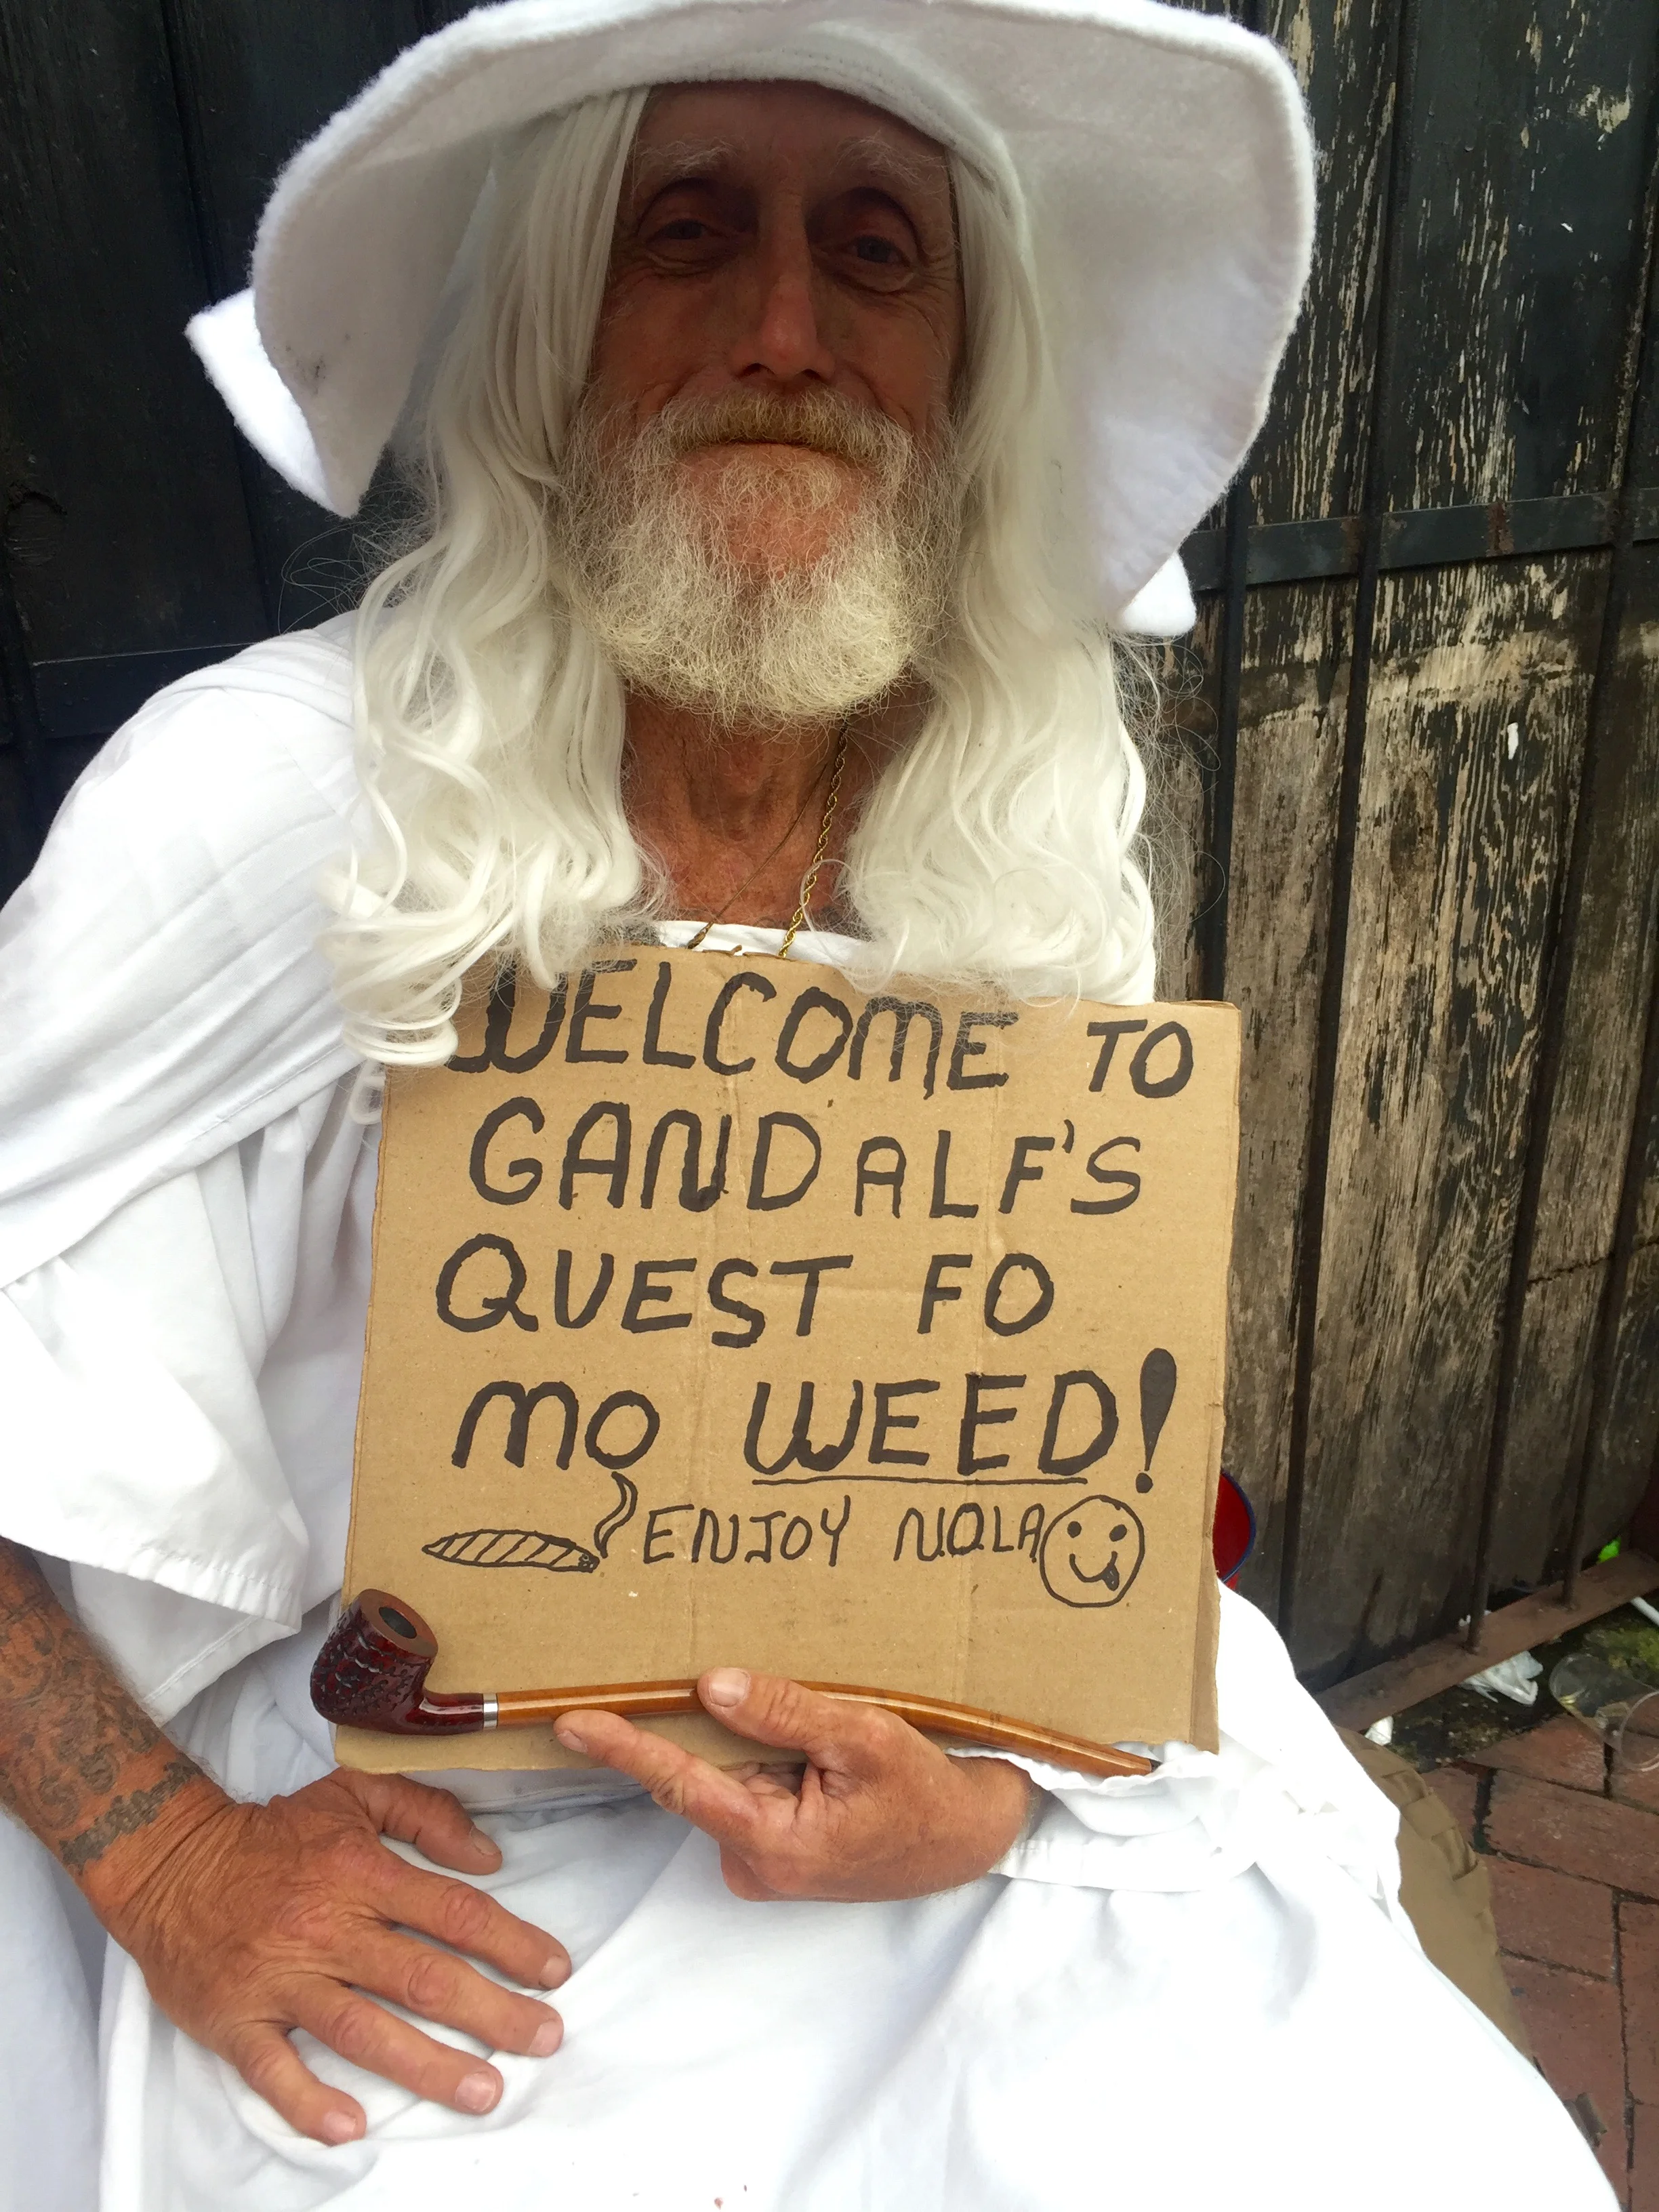 WELCOME TO
GANDALF'S
QUEST FO
MO WEED!
ENJOY NOLA